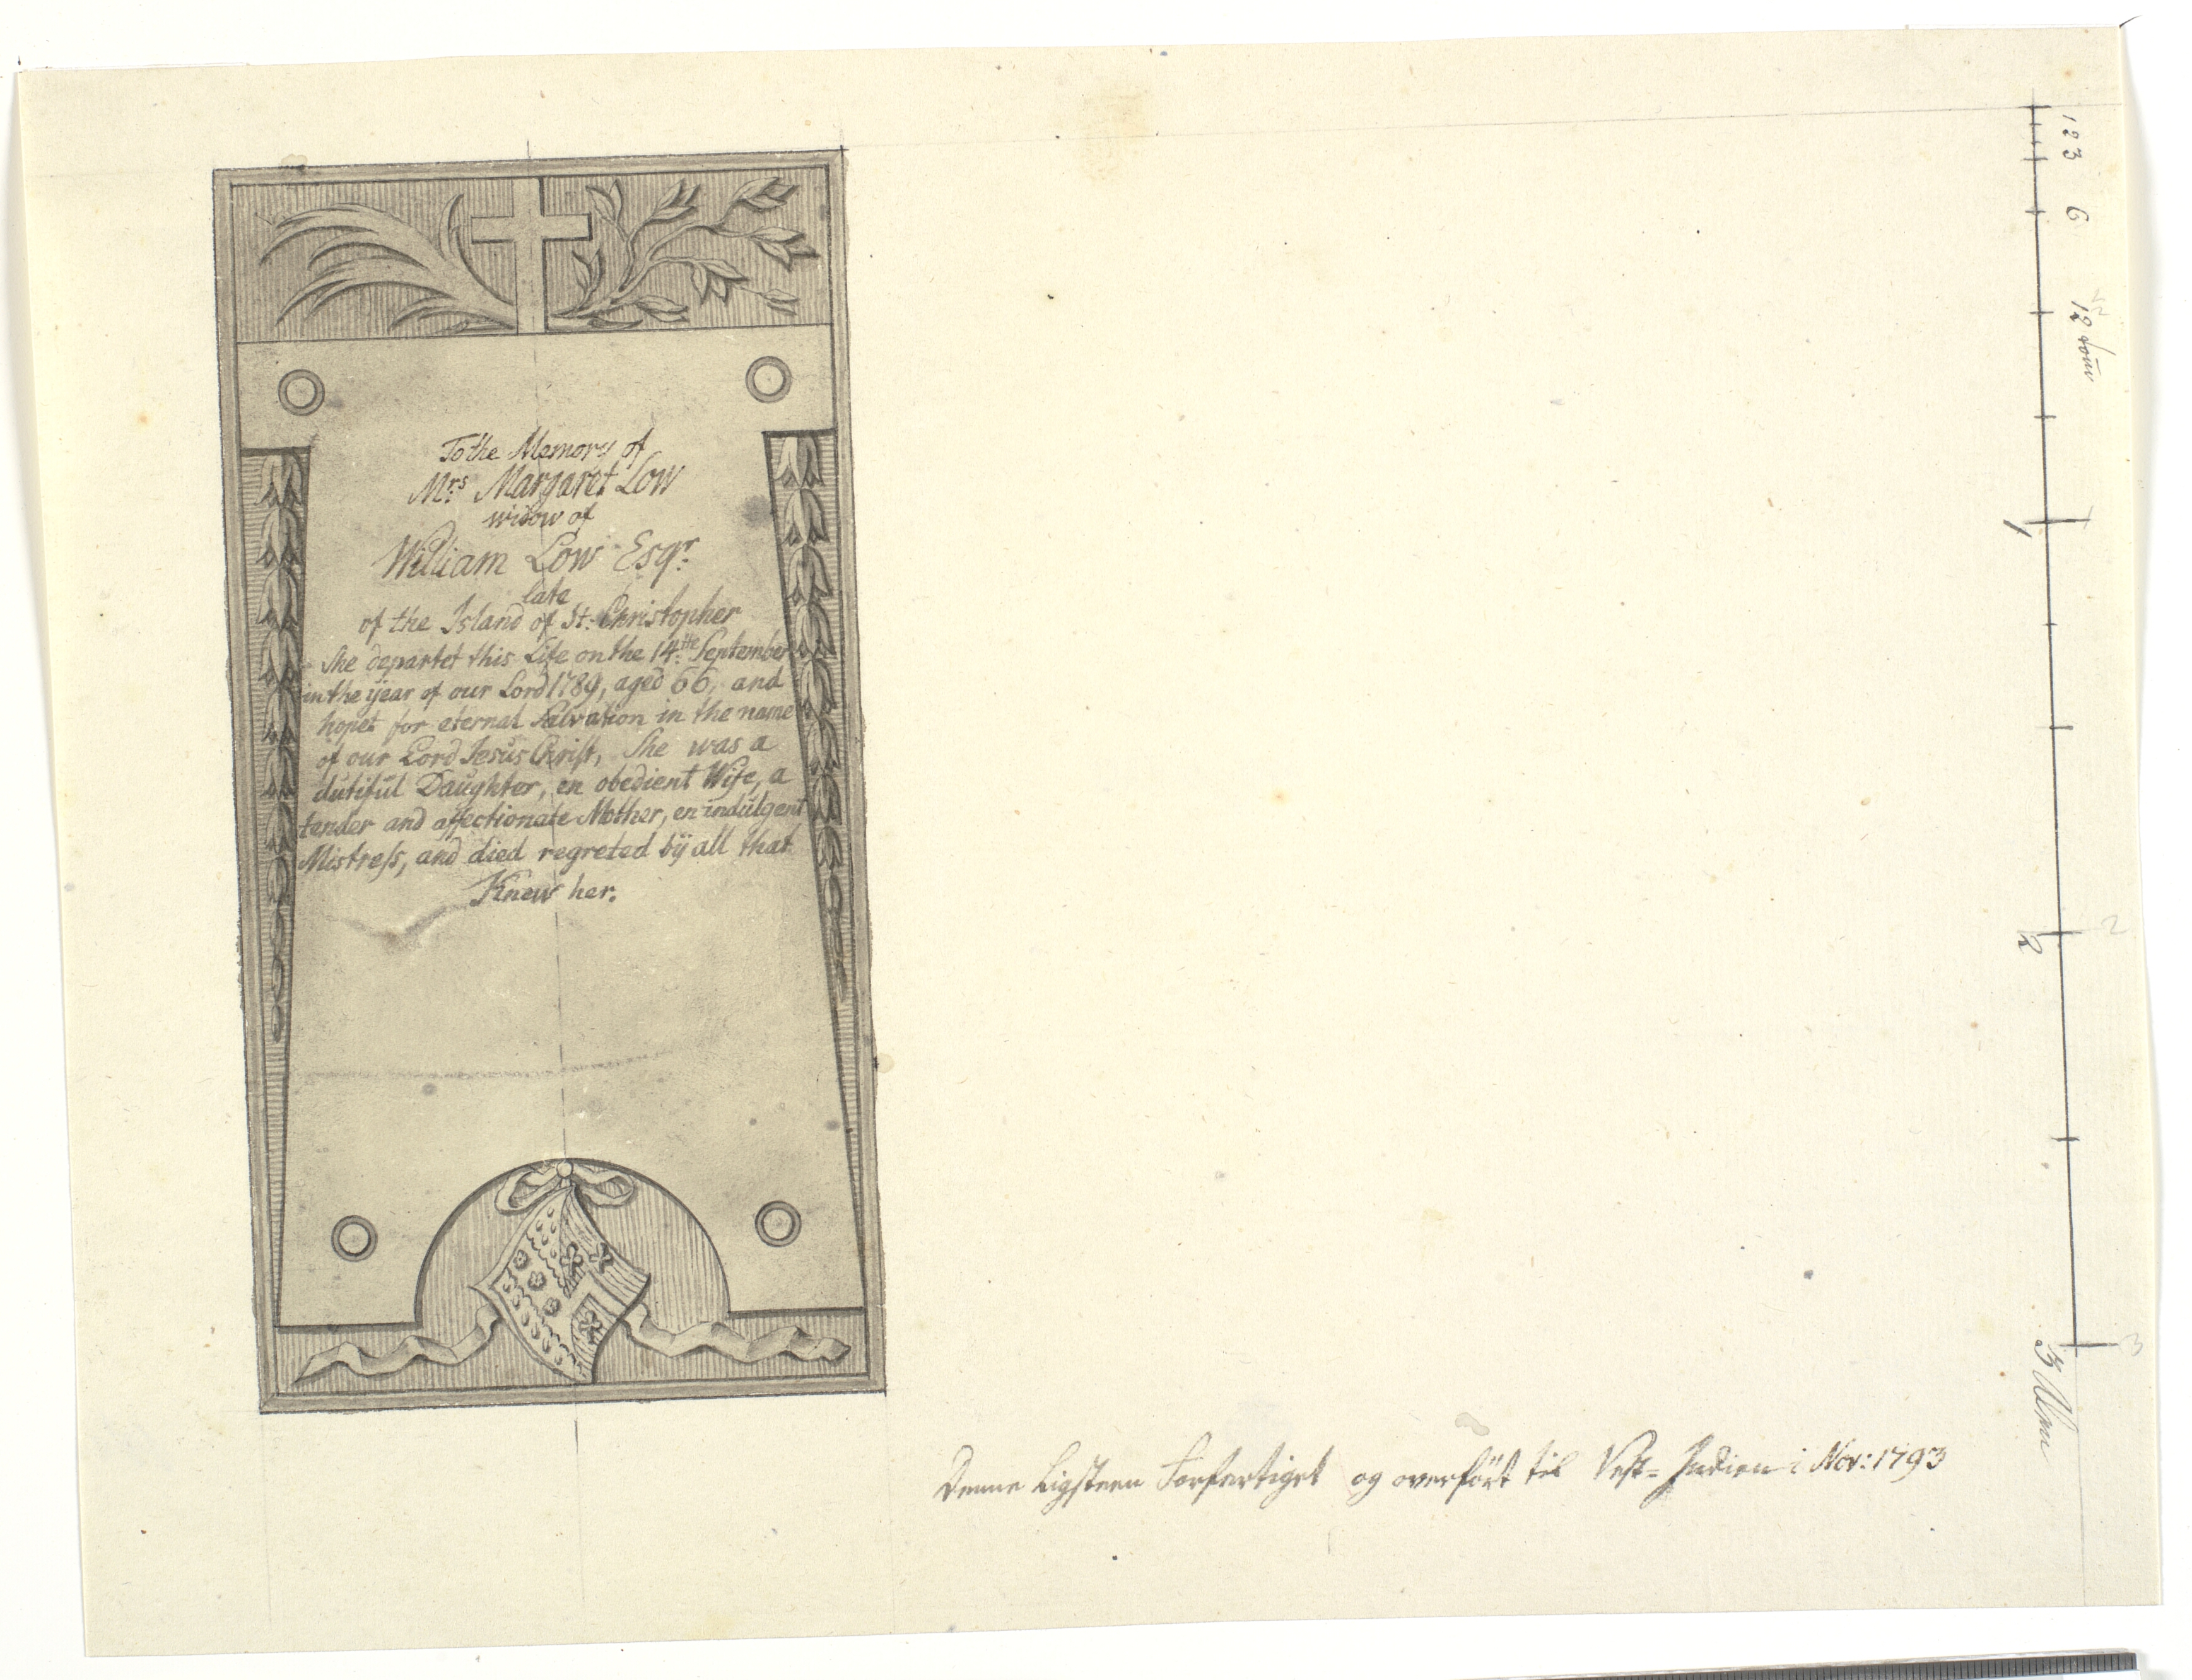 To the Memory of
Mrs Margaret Low
widow of
William Low Esqr.
late
of the Island of St. Christopher
She departet this Life on the 14the September
in the year of our Lord 1789, aged 66, and
hopet for eternal Salvation in the name
of our Lord Jesus Christ, She was a
dutiful Daughter, en obedient Wife, a
tender and affectionate Mother, en indulgent
Mistress, and died regreted bÿ all that
Knew her.
Denne Ligsteen Forfærtiget og overført til Vest=Indien i Nov: 1793
1 2 3 6 12
1
2 2
3 Alen 3